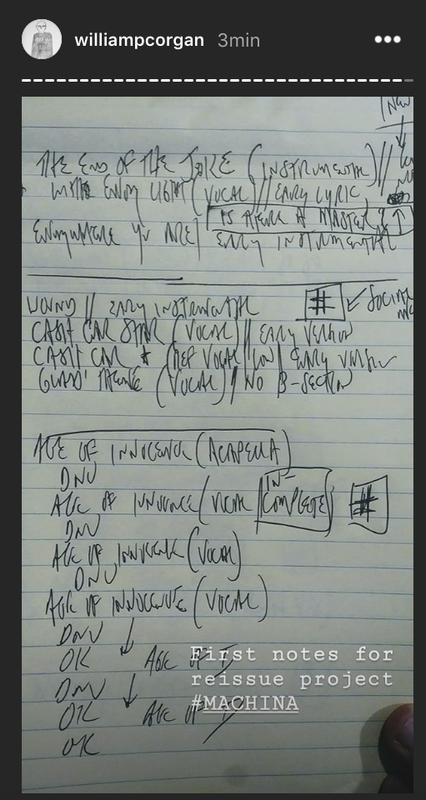 williampcorgan 3min
NEW
THE END OF THE JOKE (INSTRUMENTAL) //
WITH EVERY LIGHT (VOCAL // EARLY LYRIC)
IS THERE A MASTER?
EARLY INSTRUMENTAL
WOUND // EARLY INSTRUMENTAL # ←
CASH CAR STAR (VOCAL) // EARLY VERSION
CASH CAR * (REF VOCAL) EARLY VERSION
GLASS' THEME (VOCAL) // NO B-SECTION
AGE OF INNOCENCE (ACAPELLA)
DNU
AGE OF INNOCENCE (VOCAL IN-COMPLETE) #
DNU
AGE OF INNOCENCE (VOCAL)
DNU
AGE OF INNOCENCE (VOCAL)
DNU ↓
OK AGE OF I
DNU ↓
OK AGE OF I
OK
First notes for
reissue project
#MACHINA